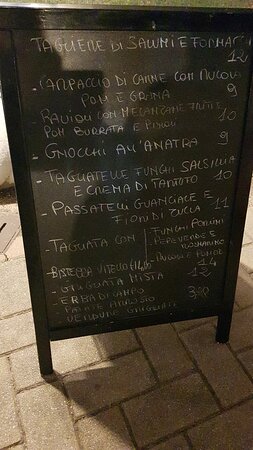 TAGLIERE DI SALUMI E FORMAGGI
12
- CARPACCIO DI CARNE CON RUCOLA
POM E GRANA 9
- RAVIOLI CON MELANZANE FRITTE
POM BURRATA E PINOLI 10
- GNOCCHI ALL'ANATRA 9
- TAGLIATELLE FUNGHI SALSICCIA
E CREMA DI TARTUFO 10
- PASSATELLI GUANCIALE E
FIORI DI ZUCCA 11
- TAGLIATA CON FUNGHI PORCINI
PEPEVERDE E
ROSMARINO
RUCOLA E POM
14
- BISTECCA VITELLO
- GRIGLIATA MISTA 12
- ERBA DI CAMPO
PATATE ARROSTO 3,90
VERDURE GRIGLIATE